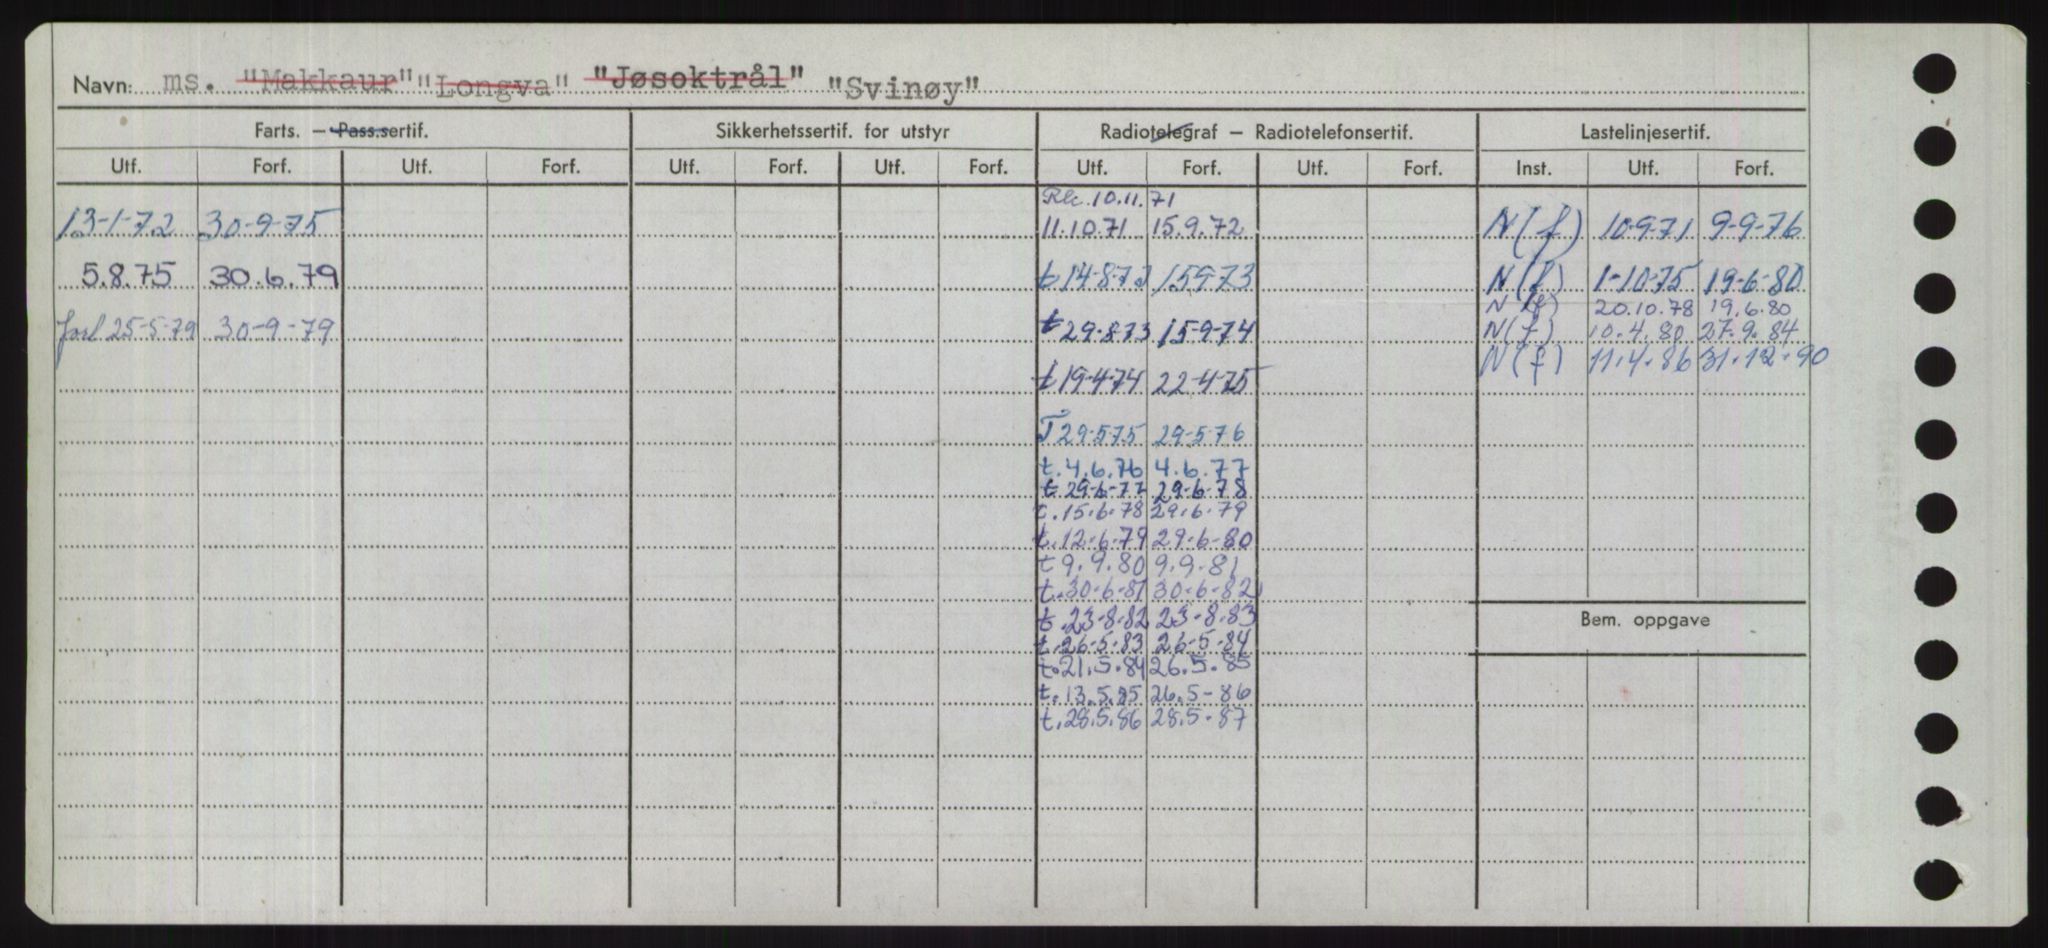 Navn: ms. "Makkaur" "Longva" "Jøsoktrål" "Svinøy"
Farts. – Pass.sertif. Sikkerhetssertif. for utstyr Radiotelegraf – Radiotelefonsertif. Lastelinjesertif.
Utf. Forf. Utf. Forf. Utf. Forf. Utf. Forf. Utf. Forf. Utf. Forf. Inst. Utf. Forf.
10.11.71
13-1-72 30-9-75 11.10.71 15.9.72 N(f) 10-9-71 9-9-76
5.8.75 30.6.79 t 14-8-72 15-9-73 N(f) 1-10-75 19-6-80
N(f) 20.10.78 19.6.80
forl 25-5-79 30-9-79 t 29-8-73 15-9-74 N(f) 10.4.80 27.9.84
N(f) 11.4.86 31.12.90
t 19-4-74 22-4-75
T 29-5-75 29-5-76
t. 4.6.76 4.6.77
t 29-6-77 29-6-78
t. 15.6.78 29.6.79
t. 12-6-79 29-6-80
t 9.9.80 9.9.81
t. 30-6-81 30-6-82
t. 23-8-82 23-8-83
Bem. oppgave
t. 26-5-83 26-5-84
t. 21.5.84 26.5.85
t. 13.5.85 26.5-86
t. 28.5.86 28.5-87